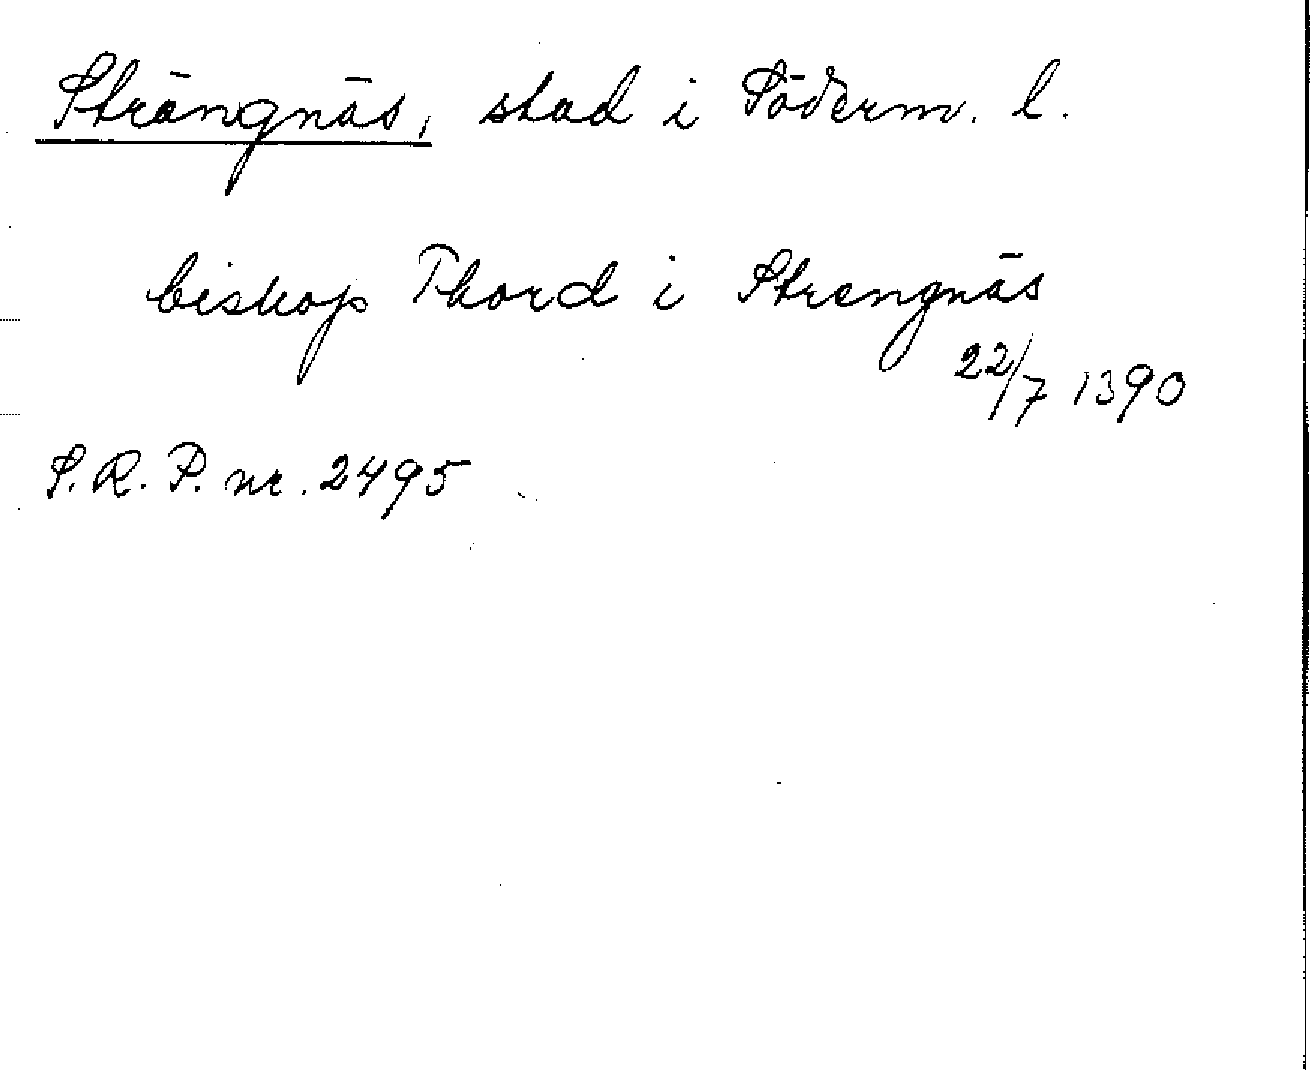 Strängnäs, stad i Söderm. l.
biskop Thord i Strengnäs
22/7 1390
S. R. P. nr. 2495